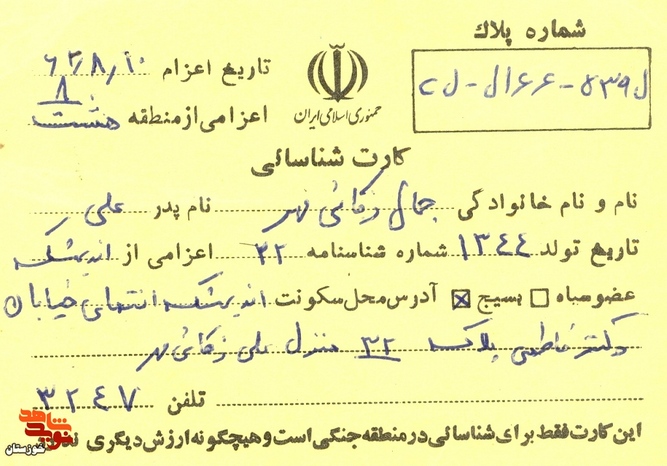 شماره پلاك
تاریخ اعزام ۶۲/۸/۱۰
۸
اعزامی از منطقه هشت
جمهوری اسلامی ایران
کارت شناسائی
نام و نام خانوادگی جمال زکائی مهر نام پدر علی
تاریخ تولد ۱۳۴۴ شماره شناسنامه ۳۲ اعزامی از اندیمشک
عضو سپاه بسیج آدرس محل سکونت اندیمشک انتهای خیابان
دکتر فاطمی پلاک ۳۲ منزل علی زکائی مهر
تلفن ۳۲۴۷
این کارت فقط برای شناسائی در منطقه جنگی است و هیچگونه ارزش دیگری
نوید شاهد
خوزستان